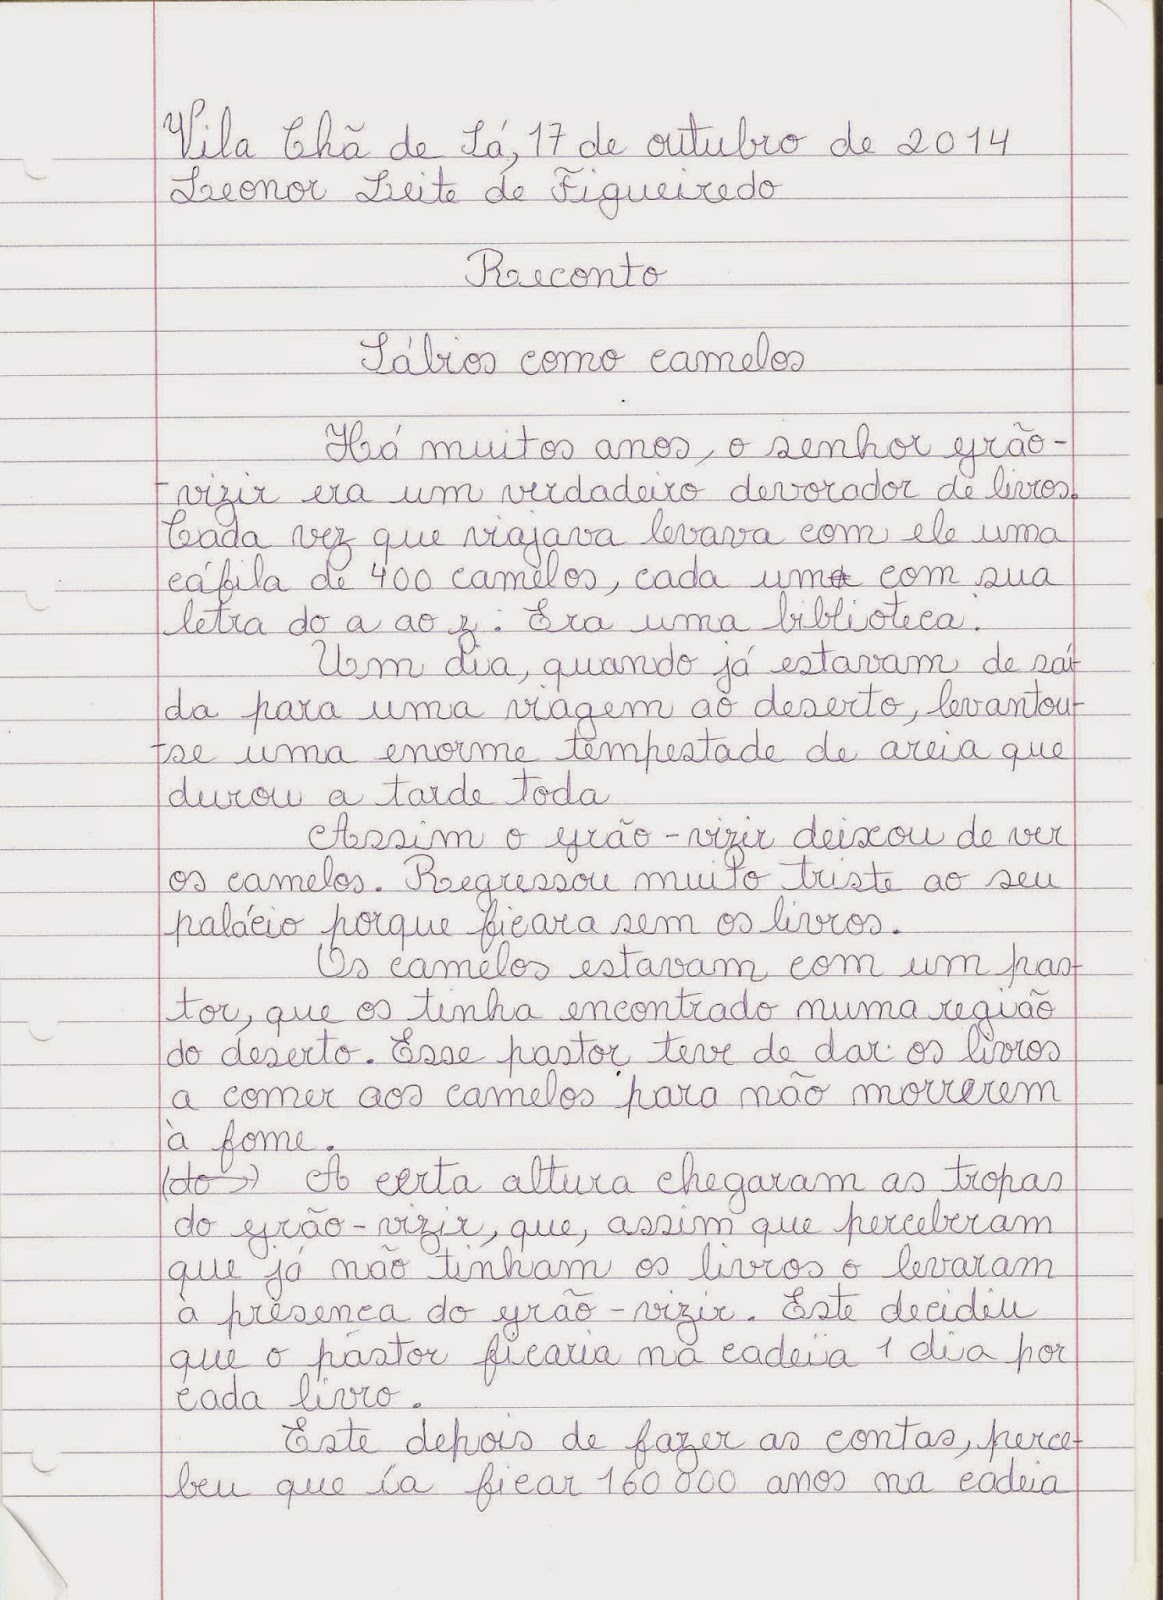 Vila Chã de Sá, 17 de outubro de 2014
Leonor Leite de Figueiredo
Reconto
Sábios como camelos
Há muitos anos, o senhor grão-
-vizir era um verdadeiro devorador de livros.
Cada vez que viajava levava com ele uma
cáfila de 400 camelos, cada um com sua
letra do a ao z. Era uma biblioteca.
Um dia, quando já estavam de saí-
da para uma viagem ao deserto, levantou-
-se uma enorme tempestade de areia que
durou a tarde toda
Assim o grão-vizir deixou de ver
os camelos. Regressou muito triste ao seu
palácio porque ficara sem os livros.
Os camelos estavam com um pas-
tor, que os tinha encontrado numa região
do deserto. Esse pastor teve de dar os livros
a comer aos camelos para não morrerem
à fome.
(do→) A certa altura chegaram as tropas
do grão-vizir, que, assim que perceberam
que já não tinham os livros o levaram
à presença do grão-vizir. Este decidiu
que o pastor ficaria na cadeia 1 dia por
cada livro.
Este depois de fazer as contas, perce-
beu que ia ficar 160 000 anos na cadeia